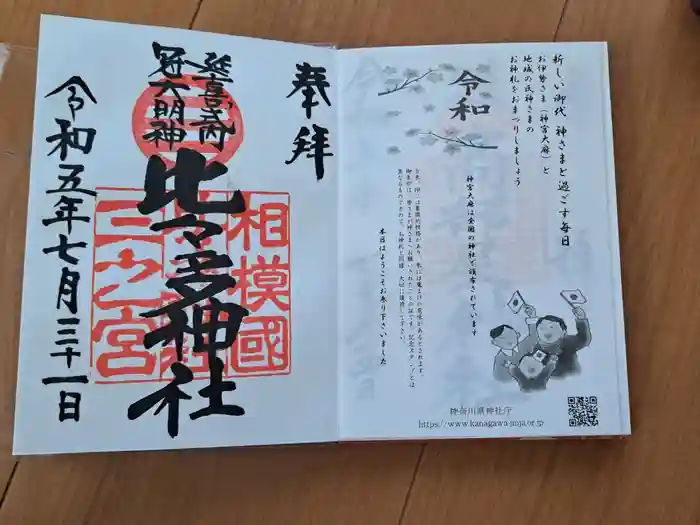 奉拝
延喜式内
冠大明神
比々多神社
令和五年七月三十一日
相模國
三之宮
新しい御代 神さまと過ごす毎日
お伊勢さま（神宮大麻）と
地域の氏神さまの
お神札をおまつりしましょう
令和
神宮大麻は全国の神社で頒布されています
本日はようこそお参り下さいました
神奈川県神社庁
https://www.kanagawa-jinja.or.jp